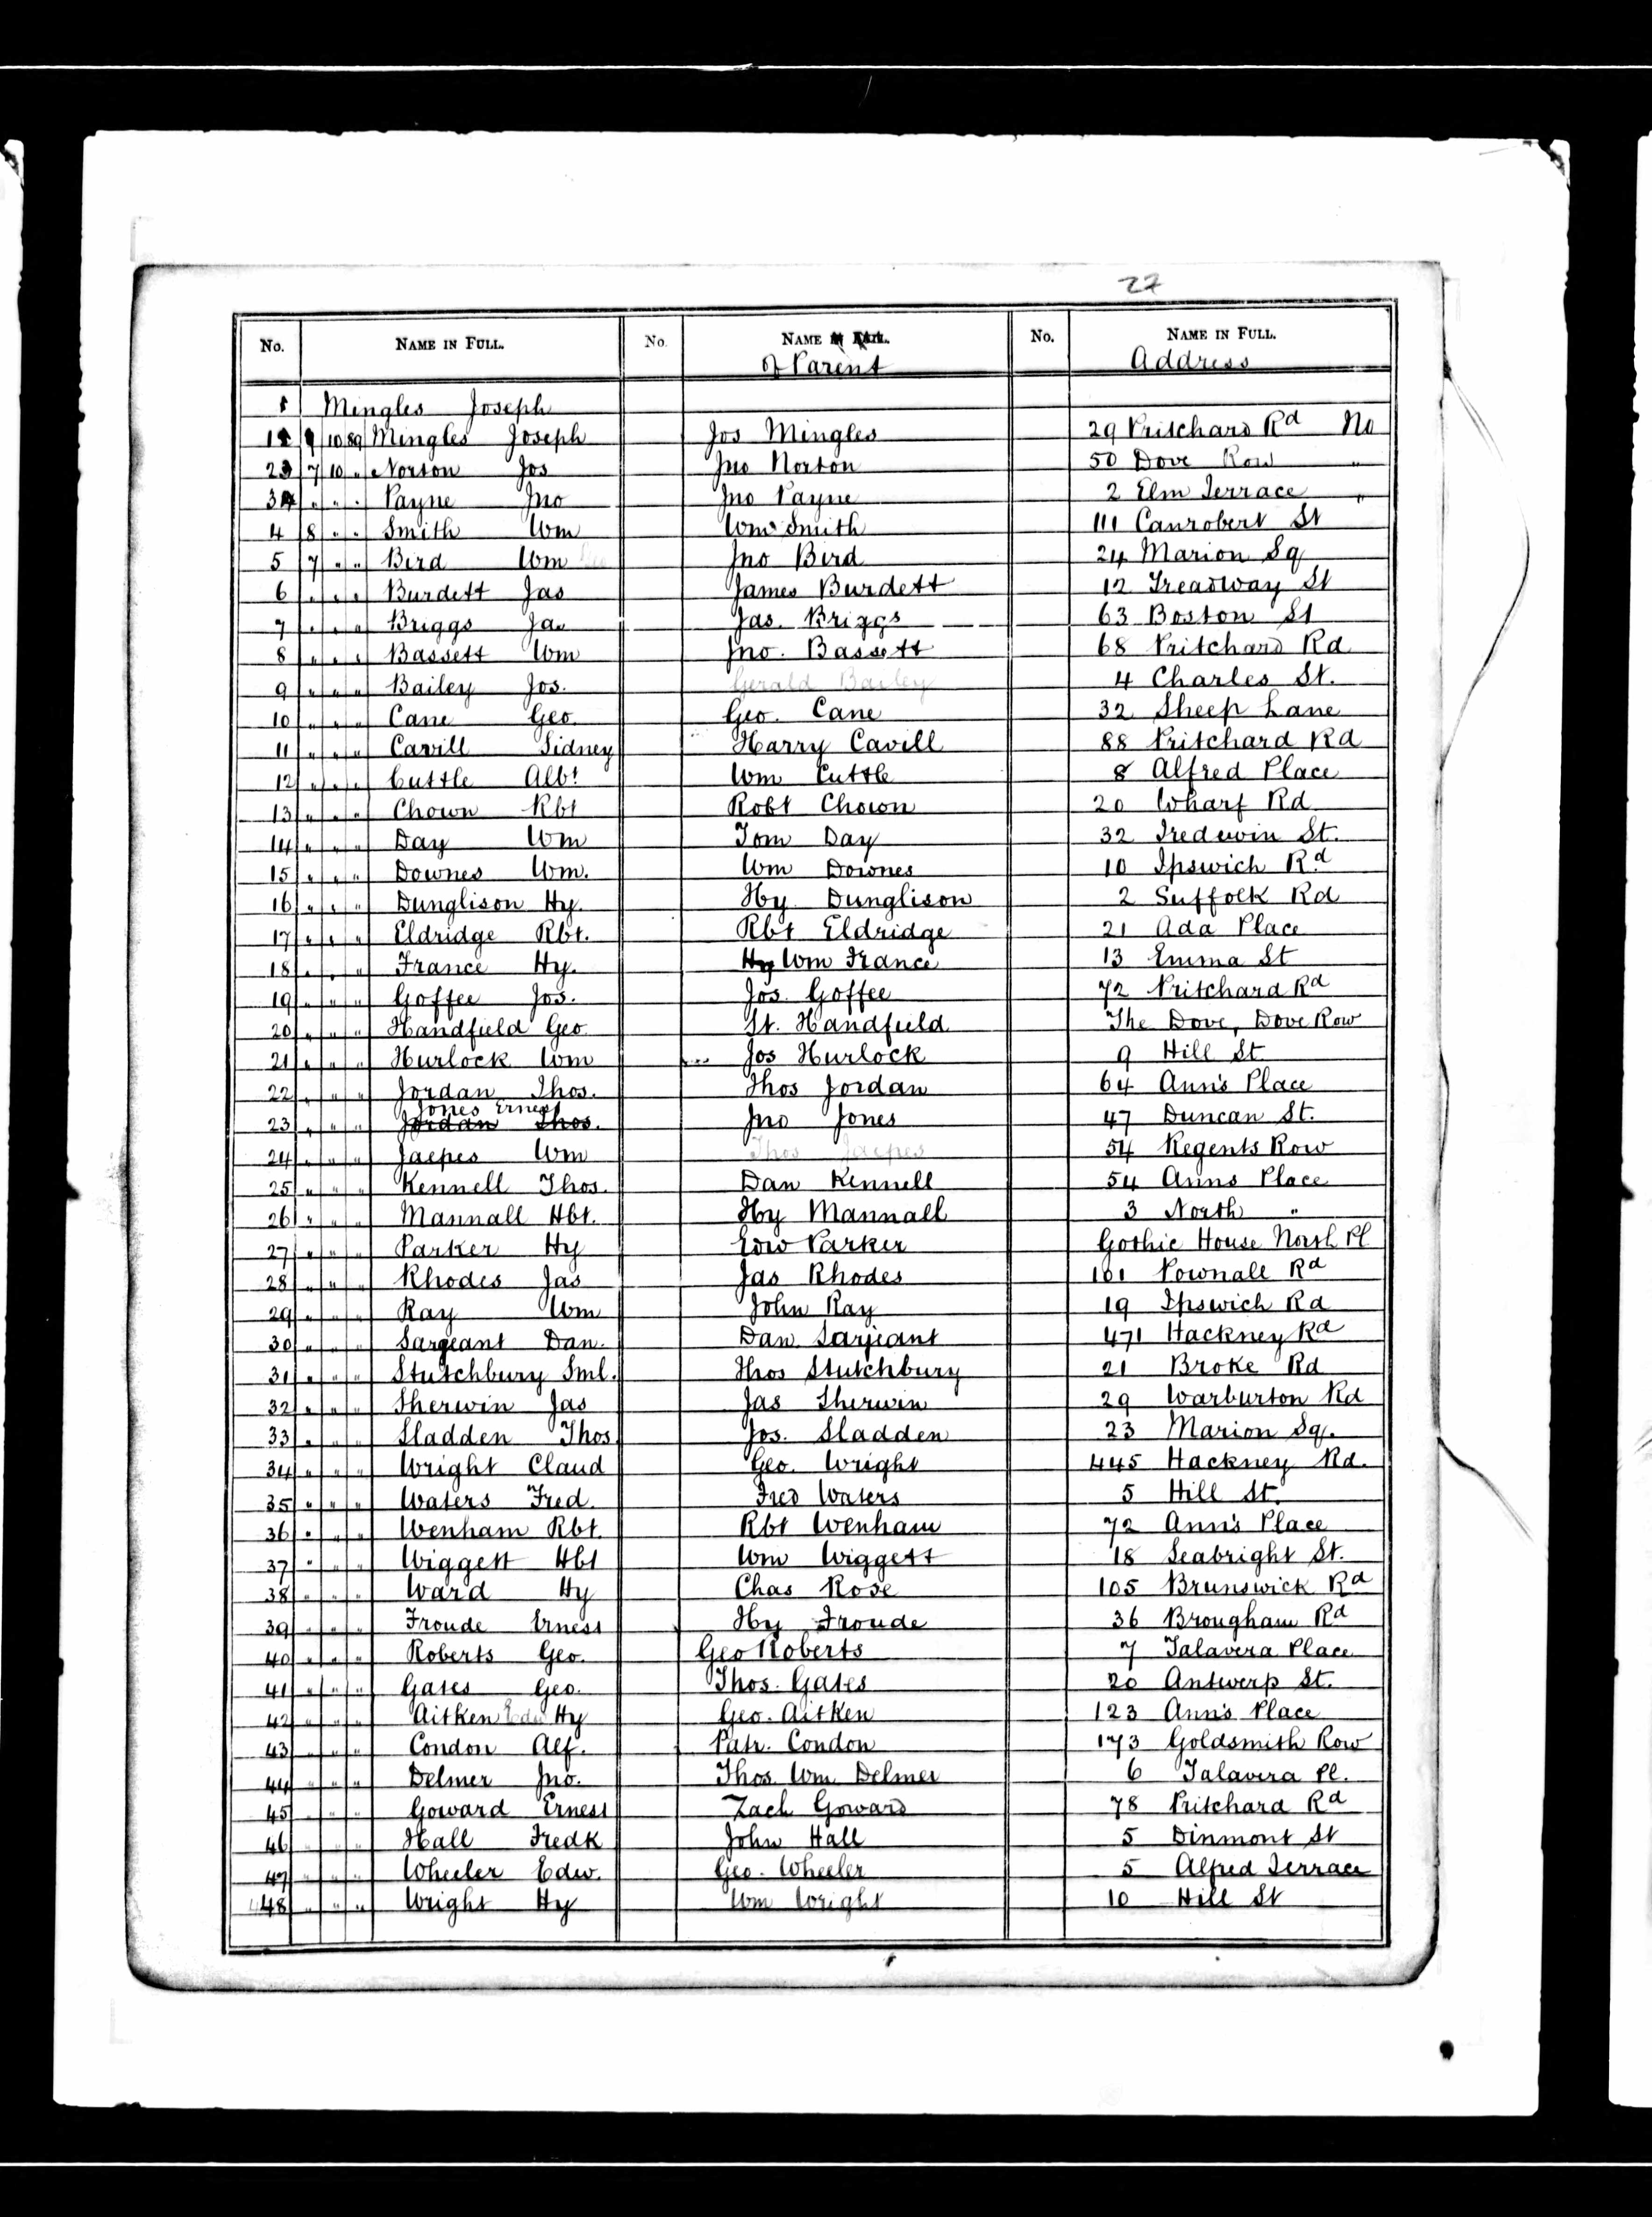 27
No. NAME IN FULL. No. NAME IN FULL. No. NAME IN FULL.
of Parent Address
1 Mingles Joseph
1 9 10 89 Mingles Joseph Jos Mingles 29 Pritchard Rd No
2 7 10 " Norton Jos Jno Norton 50 Dove Row "
3 " " " Payne Jno Jno Payne 2 Elm Terrace "
4 8 " " Smith Wm Wm Smith 111 Canrobert St
5 7 " " Bird Wm Jno Bird 24 Marion Sq
6 " " " Burdett Jas James Burdett 12 Treadway St
7 " " " Briggs Jas Jas. Briggs 63 Boston St
8 " " " Bassett Wm Jno. Bassett 68 Pritchard Rd
9 " " " Bailey Jos. Gerald Bailey 4 Charles St.
10 " " " Cane Geo. Geo. Cane 32 Sheep Lane
11 " " " Cavill Sidney Harry Cavill 88 Pritchard Rd
12 " " " Cuttle Albt Wm Cuttle 8 Alfred Place
13 " " " Chown Rbt Robt Chown 20 Wharf Rd
14 " " " Day Wm Tom Day 32 Teduwin St.
15 " " " Downes Wm. Wm Downes 10 Ipswich Rd
16 " " " Dunglison Hy. Hy Dunglison 2 Suffolk Rd
17 " " " Eldridge Rbt. Rbt Eldridge 21 Ada Place
18 " " " France Hy. Hy Wm France 13 Emma St
19 " " " Goffee Jos. Jos. Goffee 72 Pritchard Rd
20 " " " Handfield Geo St. Handfield The Dove, Dove Row
21 " " " Hurlock Wm Jos Hurlock 9 Hill St
22 " " " Jordan Thos. Thos Jordan 64 Ann's Place
Jones Ernest
23 " " " Jordan Thos. Jno Jones 47 Duncan St.
24 " " " Jaepes Wm Thos Jaepes 54 Regents Row
25 " " " Kennell Thos. Dan Kennell 54 Anns Place
26 " " " Mannall Hbt. Hy Mannall 3 North "
27 " " " Parker Hy Edw Parker Gothic House North Pl
28 " " " Rhodes Jas Jas Rhodes 101 Pownall Rd
29 " " " Ray Wm John Ray 19 Ipswich Rd
30 " " " Sargeant Dan. Dan. Sarjeant 471 Hackney Rd
31 " " " Stutchbury Sml. Thos Stutchbury 21 Broke Rd
32 " " " Sherwin Jas Jas Sherwin 29 Warburton Rd
33 " " " Sladden Thos Jos. Sladden 23 Marion Sq.
34 " " " Wright Claud Geo. Wright 445 Hackney Rd.
35 " " " Waters Fred. Fred Waters 5 Hill St.
36 " " " Wenham Rbt. Rbt Wenham 72 Ann's Place
37 " " " Wiggett Hbt Wm Wiggett 18 Seabright St.
38 " " " Ward Hy Chas Rose 105 Brunswick Rd
39 " " " Froude Ernest Hy Froude 36 Brougham Rd
40 " " " Roberts Geo. Geo Roberts 7 Talavera Place
41 " " " Gates Geo. Thos. Gates 20 Antwerp St.
42 " " " Aitken Edw Hy Geo. Aitken 123 Ann's Place
43 " " " Condon Alf. Patr. Condon 173 Goldsmith Row
44 " " " Delmer Jno. Thos. Wm. Delmer 6 Talavera Pl.
45 " " " Goward Ernest Zach Goward 78 Pritchard Rd
46 " " " Hall Fredk John Hall 5 Dinmont St
47 " " " Wheeler Edw. Geo. Wheeler 5 Alfred Terrace
48 " " " Wright Hy Wm Wright 10 Hill St